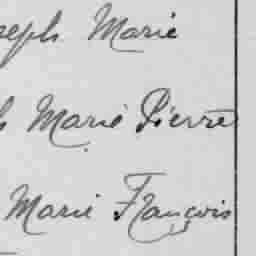 seph Marie
h Marie Pierre
Marie François